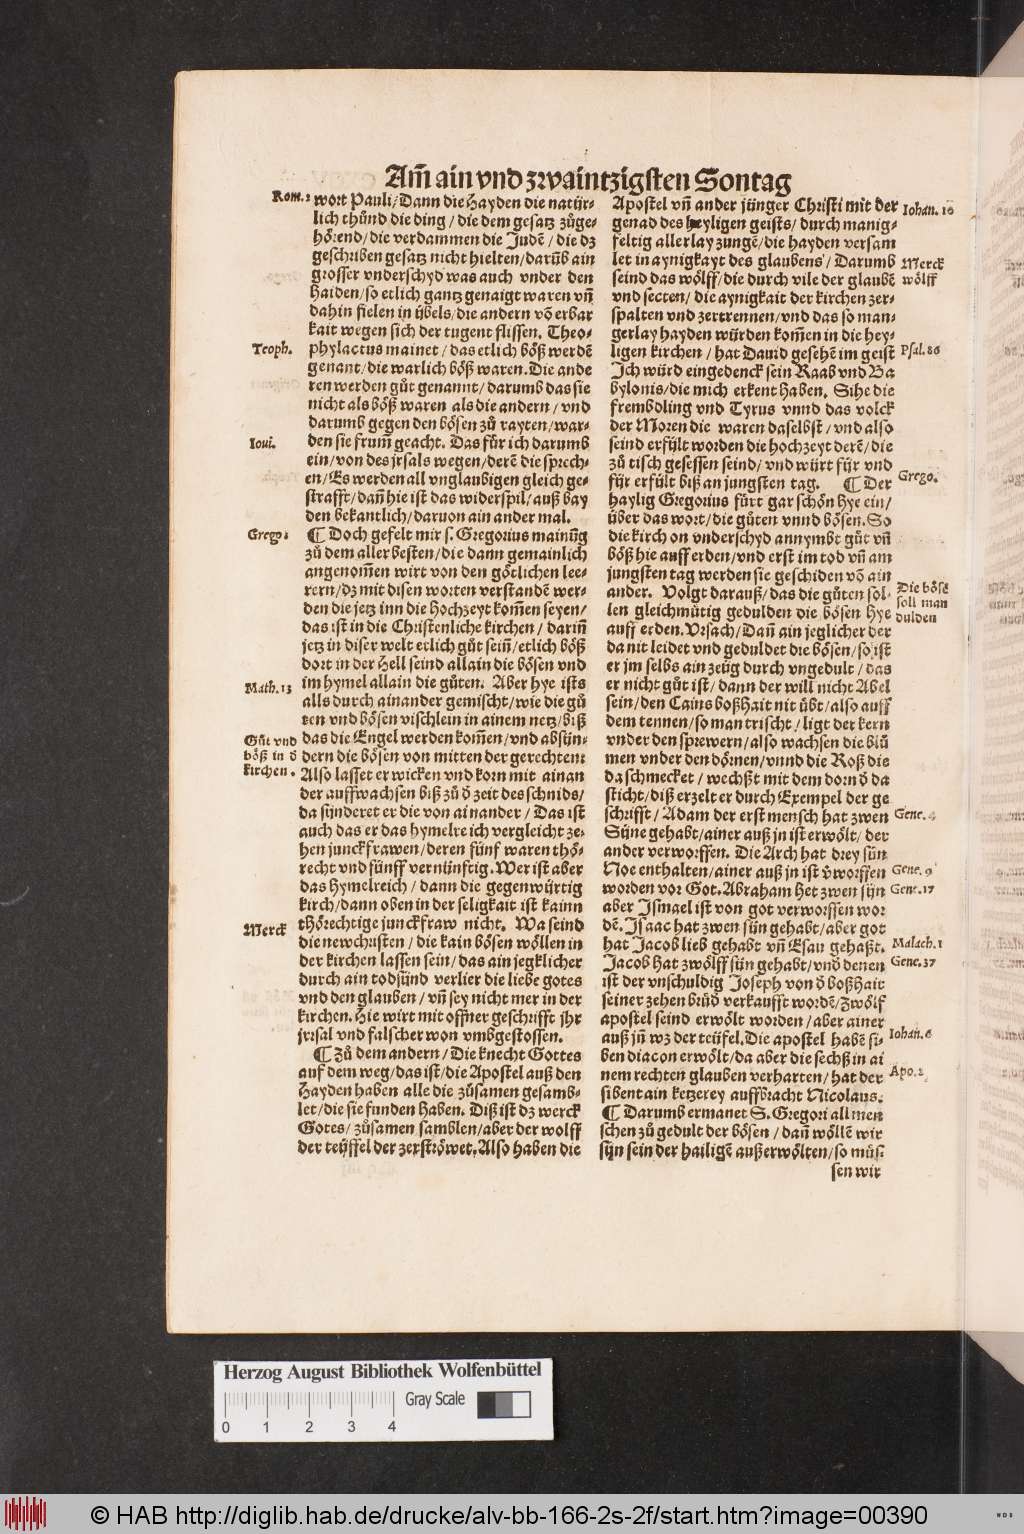 Am̃ ain vnd zwaintzigsten Sontag
Rom. 2
wort Pauli/ Dann die Hayden die natür-
lich thůnd die ding / die dem gesatz zůge-
hörend/ die verdammen die Judē / die dz
geschriben gesatz nicht hielten/ darũb ain
grosser vnderschyd was auch vnder den
Haiden/ so etlich gantz genaigt waren vñ
dahin fielen in übels/ die andern võ erbar
kait wegen sich der tugent flissen. Theo-
Teoph.
phylactus mainet / das etlich böß werdē
genant/ die warlich böß waren. Die ande
ren werden gůt genannt/ darumb das sie
nicht als böß waren als die andern / vnd
darumb gegen den bösen zů rayten/ war-
Ioui.
den sie frum̃ geacht. Das für ich darumb
ein/ von des jrsals wegen/ derē die sprech-
en/ Es werden all vnglaubigen gleich ge-
strafft/ dañ hie ist das widerspil/ auß bay
den bekantlich/ daruon ain ander mal.
Grego:
¶ Doch gefelt mir s. Gregorius mainũg
zů dem aller besten/ die dann gemainlich
angenom̃en wirt von den götlichen lee-
rern/ dz mit disen worten verstandē wer-
den die jetz inn die Hochzeyt kom̃en seyen/
das ist in die Christenliche kirchen / darin̄
jetz in diser welt etlich gůt sein̄/ etlich böß
dort in der Hell seind allain die bösen vnd
Math. 13
im hymel allain die gůten. Aber hye ists
alls durch ainander gemischt/ wie die gů
ten vnd bösen vischlein in ainem netz/ biß
Gůt vnd
böß in ð
kirchen.
das die Engel werden kom̃en/ vnd absün-
dern die bösen von mitten der gerechten:
Also lasset er wicken vnd korn mit ainan
der auffwachsen biß zů ð zeit des schnids/
da sünderet er die von ainander / Das ist
auch das er das hymelreich vergleicht ze-
hen junckfrawen/ deren fünf waren thö-
recht vnd fünff vernünftig. Wer ist aber
das hymelreich / dann die gegenwürtig
kirch/ dann oben in der seligkait ist kainn
Merck
thörechtige junckfraw nicht. Wa seind
die newchristen / die kain bösen wöllen in
der kirchen lassen sein/ das ain jegklicher
durch ain todsünd verlier die liebe gotes
vnd den glauben / vñ sey nicht mer in der
kirchen. Hie wirt mit offner geschrifft jhr
jrrsal vnd falscher won vmbgestossen.
¶ Zů dem andern / Die knecht Gottes
auf dem weg/ das ist/ die Apostel auß den
Hayden haben alle die zůsamen gesamb-
let/ die sie funden haben. Diß ist dz werck
Gotes/ zůsamen samblen/ aber der wolff
der teüffel der zerströwet. Also haben die
Apostel vñ ander jünger Christi mit der
Iohan. 10
genad des heyligen geists/ durch manig-
feltig allerlay zungē/ die hayden versam
let in aynigkayt des glaubens/ Darumb
Merck
wölff
seind das wölff/ die durch vile der glaubē
vnd secten/ die aynigkait der kirchen zer-
spalten vnd zertrennen/ vnd das so man-
gerlay hayden würden kom̃en in die hey-
ligen kirchen / hat Dauid gesehē im geist
Psal. 86
Ich würd eingedenck sein Raab vnd Ba
bylonis/ die mich erkent haben. Sihe die
frembdling vnd Tyrus vnnd das volck
der Moren die waren daselbst / vnd also
seind erfült worden die hochzeyt derē/ die
zů tisch gesessen seind/ vnd würt für vnd
für erfült biß an jungsten tag. ¶ Der
Grego.
haylig Gregorius fürt gar schön hye ein/
über das wort/ die gůten vnnd bösen. So
die kirch on vnderschyd annymbt gůt vñ
böß hie auff erden/ vnd erst im tod vñ am
jungsten tag werden sie geschiden võ ain
ander. Volgt darauß/ das die gůten sol-
Die bösē
soll man
dulden
len gleichmütig gedulden die bösen hye
auff erden. Vrsach/ Dañ ain jeglicher der
da nit leidet vnd geduldet die bösen/ so ist
er jm selbs ain zeüg durch vngedult / das
er nicht gůt ist/ dann der will nicht Abel
sein/ den Cains boßhait nit übt/ also auff
dem tennen/ so man trischt / ligt der kern
vnder den sprewern/ also wachsen die blů
men vnder den dörnen/ vnnd die Roß die
da schmecket / wechßt mit dem dorn ð da
sticht/ diß erzelt er durch Exempel der ge
schrifft / Adam der erst mensch hat zwen
Gene. 4
Süne gehabt/ ainer auß jn ist erwölt/ der
ander verworffen. Die Arch hat drey sün
Noe enthalten/ ainer auß jn ist v̄worffen
Gene. 9
worden vor Got. Abraham het zwen sün
Gene. 17
aber Ismael ist von got verworffen wor
dē. Isaac hat zwen sün gehabt/ aber got
hat Jacob lieb gehabt vñ Esau gehaßt.
Malach. 1
Jacob hat zwölff sün gehabt/ vnd denen
Gene. 37
ist der vnschuldig Joseph von ð boßhait
seiner zehen brüd̄ verkaufft wordē/ Zwölf
apostel seind erwölt worden / aber ainer
auß jñ wz der teüfel. Die apostel habē si-
Iohan. 6
ben diacon erwölt/ da aber die sechß in ai
nem rechten glauben verharten/ hat der
Apo. 2
sibent ain ketzerey auffbracht Nicolaus.
¶ Darumb ermanet S. Gregori all men
schen zů gedult der bösen / dañ wöllē wir
sün sein der hailigē außerwölten/ so müs-
sen wir
Herzog August Bibliothek Wolfenbüttel
Gray Scale
0 1 2 3 4
© HAB http://diglib.hab.de/drucke/alv-bb-166-2s-2f/start.htm?image=00390